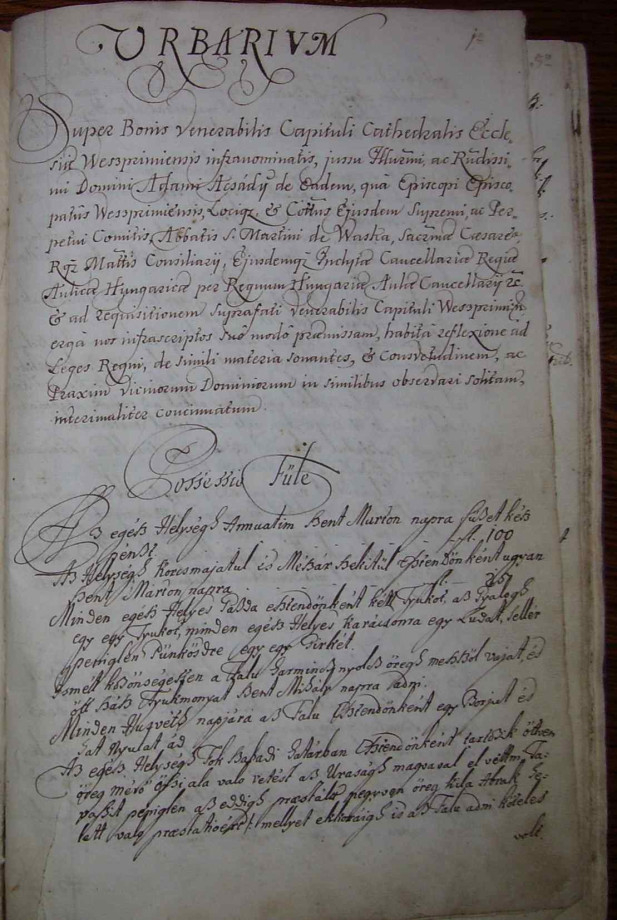 URBARIUM
Super Bonis Venerabilis Capituli Cathedralis Eccle-
siæ Wesspriniensis infranominatis, jussu Illrmi, ac Rndissi-
mi Domini Adami Acsády de Eadem, quà Episcopi Episco
patus Wesspriniensis, Lociq, & Cottus Ejusdem Supremi, ac Per-
petui Comitis, Abbatis S. Martini de Waska, Sacrmæ Cæsareæ
Rgz Mattis Consiliarij, Ejusdemqz Inclytæ Cancellariæ Regiæ
Aulicæ Hungaricæ per Regnum Hungariæ Aulæ Cancellarij &c.
& ad requisitionem suprafati Venerabilis Capituli Wessprimien
ergà nos infrascriptos suô modô præmissam, habitâ reflexione ad
Leges Regni, de simili materia sonantes, & Consvetudinem, ac
Praxim Vicinorum Dominiorum in similibus observari solitam,
interimaliter concinnatum.
Possessio Füle
Az egész Helységh Annuatim Szent Márton napra fizet kész
penzt 100
Az Helységh Korcsmajatul és Mészár Szekitül Esztendönként ugyan
Szent Márton napra
Minden egész Helyes gazda esztendönként kétt Tyukot, az Gyalogh
egy egy Tyukot, minden egész Helyes Karácsonra egy Ludat, sellér
peniglen Pünkösdre egy egy Csirkét.
Ismétt közönségessen a Falu harmincz nyolcz öregh meszszöl vajat, és
ött száz Tyukmonyat Szent Mihály napra adni.
Minden Husvéth napjára az Falu Esztendönként egy Borjut és
hat Nyulat ád
Az egész Helységh Fok Szabadi határban Esztendönként tartozik ötven
öreg mérö öszi ala való vetést az Uraságh magvaval el vettni, Ta-
vaszit peniglen az eddigh præstált negyven öreg kila Abrak he-
lett való præstatioért mellyet ekkoráigh is az Falu adni köteles
volt.